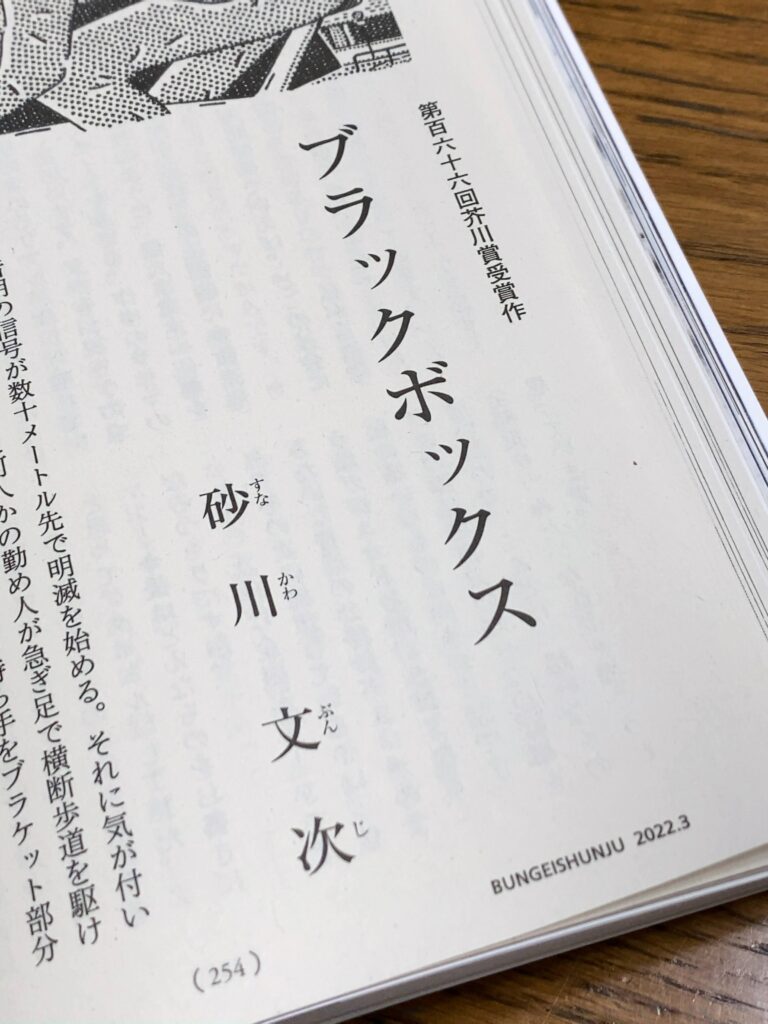 第百六十六回芥川賞受賞作
ブラックボックス
砂川文次
すなかわぶんじ
の信号が数十メートル先で明滅を始める。それに気が付い
人かの勤め人が急ぎ足で横断歩道を駆け
手をブラケット部分
BUNGEISHUNJU 2022.3
(254)